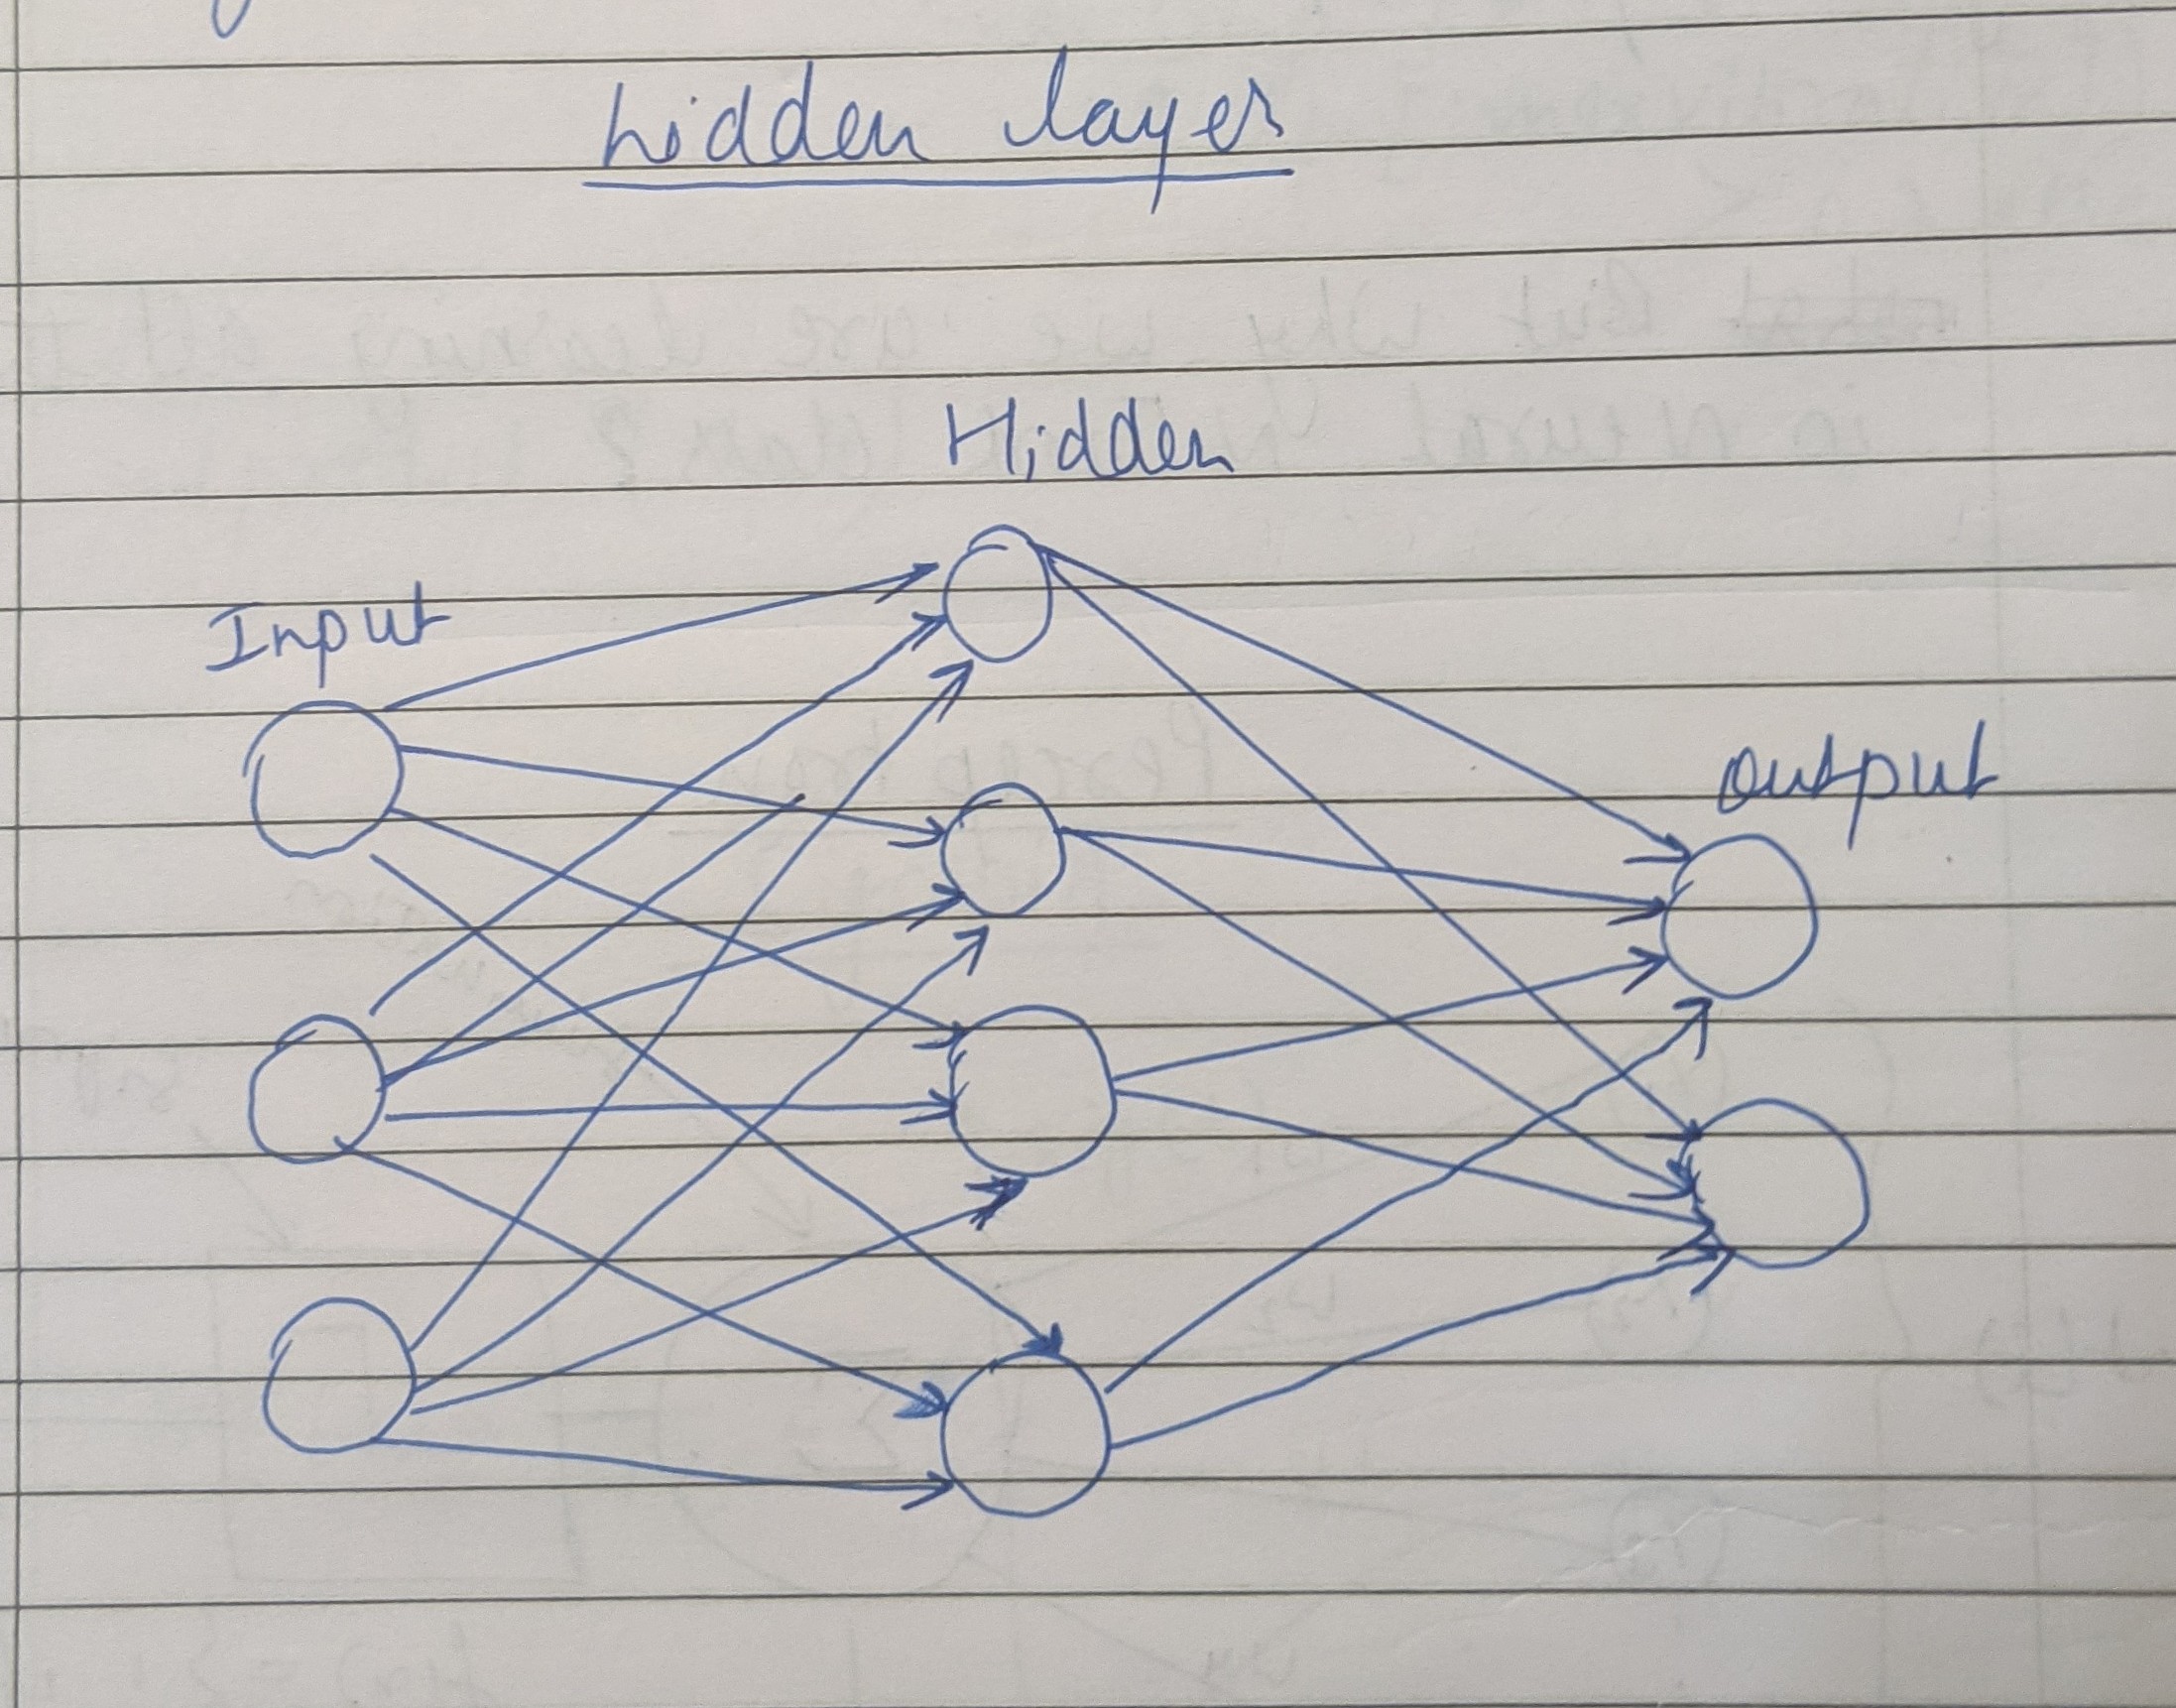 hidden layer
Hidden
Input
output